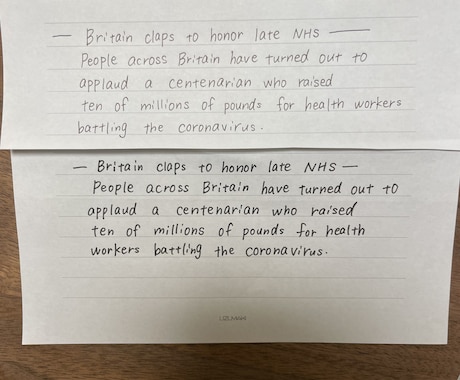 — Britain claps to honor late NHS —
People across Britain have turned out to
applaud a centenarian who raised
ten of millions of pounds for health workers
battling the coronavirus.
— Britain claps to honor late NHS —
People across Britain have turned out to
applaud a centenarian who raised
ten of millions of pounds for health
workers battling the coronavirus.